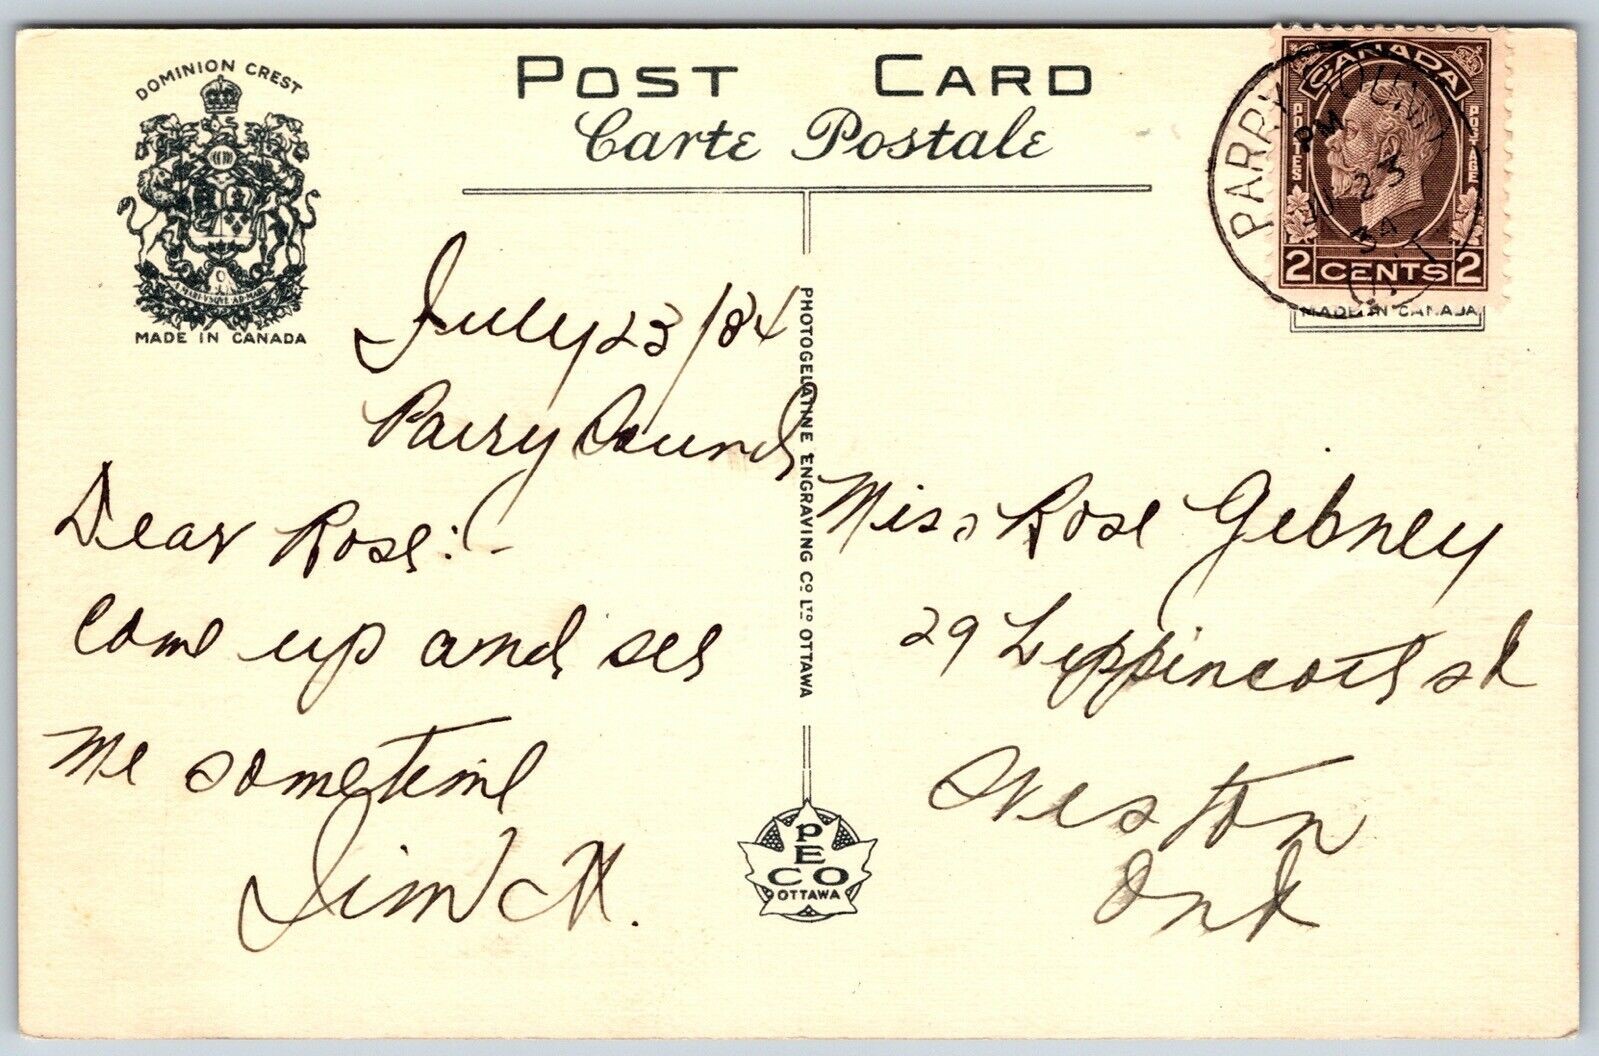 DOMINION CREST
A MARI USQUE AD MARE
MADE IN CANADA
POST CARD
Carte Postale
CANADA
POSTES
POSTAGE
2 CENTS 2
PARRY SOUND
PM
23
34
ONT
MADE IN CANADA
July 23/34
Parry Sound
Dear Rose:-
Come up and see
me sometime
Jim
PHOTOGELATINE ENGRAVING CO LTD OTTAWA
PECO
OTTAWA
Miss Rose Gibney
29 Lippincott st
Weston
Ont